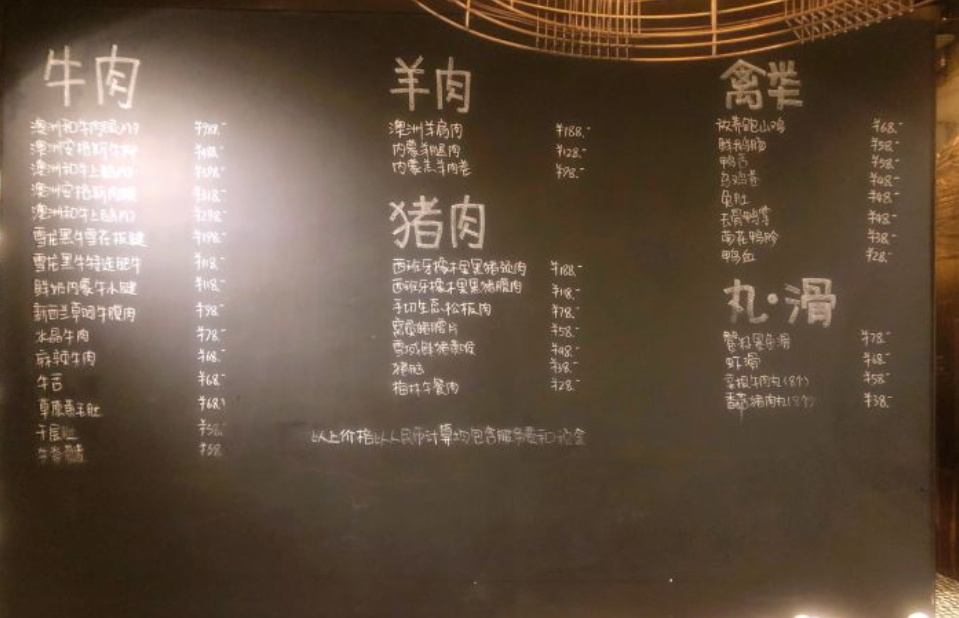 牛肉
澳洲和牛 M9
澳洲安格斯牛
澳洲和牛上脑 M7 ¥398.-
澳洲安格斯肉眼 ¥318.-
澳洲和牛上脑 ¥298.-
雪龙黑牛雪花板腱 ¥198.-
雪龙黑牛特选肥牛 ¥118.-
鲜奶内蒙牛小腱 ¥118.-
新西兰草饲牛腹肉 ¥98.-
水晶牛肉 ¥78.-
麻辣牛肉 ¥68.-
牛舌 ¥68.-
草原黑毛肚 ¥68.-
千层肚 ¥58.-
牛脊髓
羊肉
澳洲羊肩肉 ¥188.-
内蒙羊腿肉 ¥128.-
内蒙羔羊肉卷 ¥98.-
猪肉
西班牙橡木果黑猪颈肉 ¥188.-
西班牙橡木果黑猪腹肉 ¥118.-
手切生态松板肉 ¥78.-
¥58.-
雪域鲜猪黄喉 ¥48.-
猪脑 ¥38.-
梅林午餐肉 ¥28.-
禽类
放养跑山鸡 ¥68.-
鲜鹅肠 ¥58.-
鸭舌 ¥58.-
乌鸡卷 ¥48.-
鱼肚 ¥48.-
去骨鸭掌 ¥48.-
菊花鸭胗 ¥38.-
鸭血 ¥28.-
丸·滑
蟹籽墨鱼滑 ¥78.-
虾滑 ¥68.-
牛肉丸(8个) ¥58.-
香菇猪肉丸(8个) ¥38.-
以上价格以人民币计算均包含服务费和税金